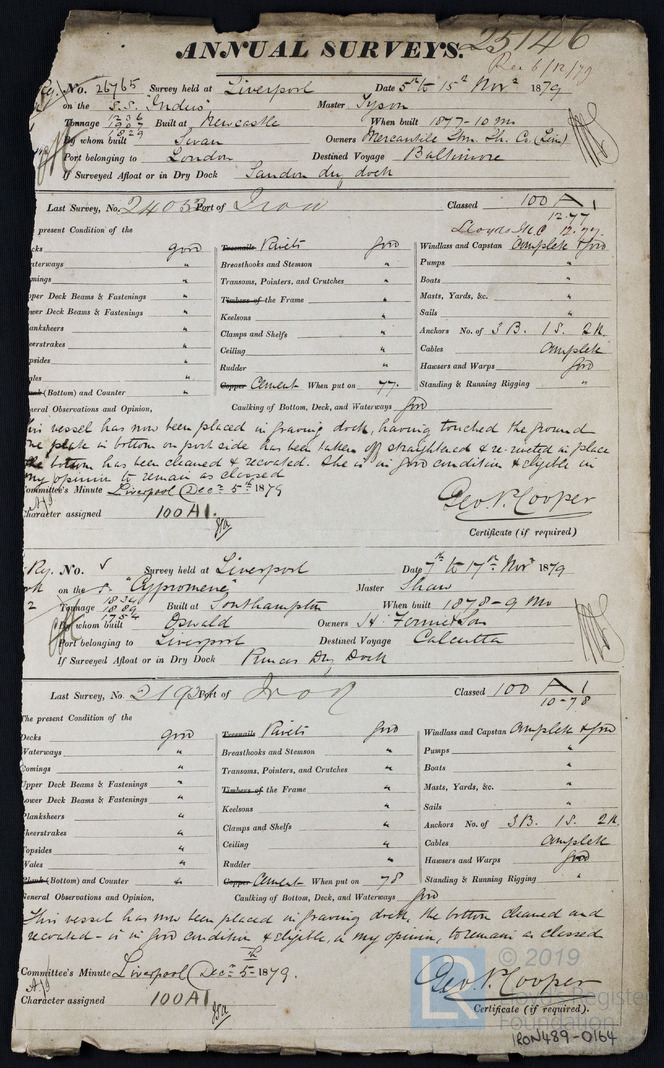 25146
ANNUAL SURVEYS.
Rec 6/12/79
No. 26765 Survey held at Liverpool Date 5th to 15th Novr 1879
on the S.S. "Indus" Master Tyson
Tonnage 1829 Built at Newcastle When built 1877-10 mo
By whom built Swan Owners Mercantile Stm. Sh. Co. (Lim)
Port belonging to London Destined Voyage Baltimore
If Surveyed Afloat or in Dry Dock Sandon dry dock
Last Survey, No. 24053 Port of Iron Classed 100 A 1
12.77
Lloyds M.C 12.77
present Condition of the
cks good Treenails Rivets Good Windlass and Capstan Complete & Good
aterways " Breasthooks and Stemson " Pumps "
mings " Transoms, Pointers, and Crutches " Boats "
pper Deck Beams & Fastenings " Timbers of the Frame " Masts, Yards, &c. "
wer Deck Beams & Fastenings " Keelsons " Sails "
anksheers " Clamps and Shelfs " Anchors No. of 3 B. 1 S. 2 K.
eerstrakes " Ceiling " Cables Complete
psides " Rudder " Hawsers and Warps Good
ales " Copper Cement When put on 77. Standing & Running Rigging "
(Bottom) and Counter "
neral Observations and Opinion, Caulking of Bottom, Deck, and Waterways Good
his vessel has now been placed in graving dock, having touched the ground
one plate in bottom on port side has been taken off straightened & re-riveted in place
the bottom has been cleaned & recoated. She is in good condition & eligible in
my opinion to remain as classed
ommittee's Minute Liverpool Decr 5th 1879
Character assigned 100A1.
Geo. P. Cooper
Certificate (if required)
No. Survey held at Liverpool Date 7th to 17th Novr 1879
on the S. "Cypromene" Master Shaw
Tonnage 1834 1889 1754 Built at Southampton When built 1878-9 mo
By whom built Oswald Owners H. Fernie & Son
Port belonging to Liverpool Destined Voyage Calcutta
If Surveyed Afloat or in Dry Dock Princes Dry Dock
Last Survey, No. Port of Iron Classed 100 A 1
10-78
The present Condition of the
Decks good Treenails Rivets Good Windlass and Capstan Complete & Good
Waterways " Breasthooks and Stemson " Pumps "
Comings " Transoms, Pointers, and Crutches " Boats "
Upper Deck Beams & Fastenings " Timbers of the Frame " Masts, Yards, &c. "
Lower Deck Beams & Fastenings " Keelsons " Sails "
Planksheers " Clamps and Shelfs " Anchors No. of 3 B. 1 S. 2 K.
Sheerstrakes " Ceiling " Cables Complete
Topsides " Rudder " Hawsers and Warps Good
Wales " Copper Cement When put on 78 Standing & Running Rigging "
Plank (Bottom) and Counter "
General Observations and Opinion, Caulking of Bottom, Deck, and Waterways Good
This vessel has now been placed in graving dock, the bottom cleaned and
recoated - is in good condition & eligible, in my opinion, to remain as classed
Committee's Minute Liverpool Decr 5th 1879.
Character assigned 100A1.
Geo. P. Cooper
Certificate (if required).
© 2019
LR Lloyd's Register
Foundation
IRON489-0164